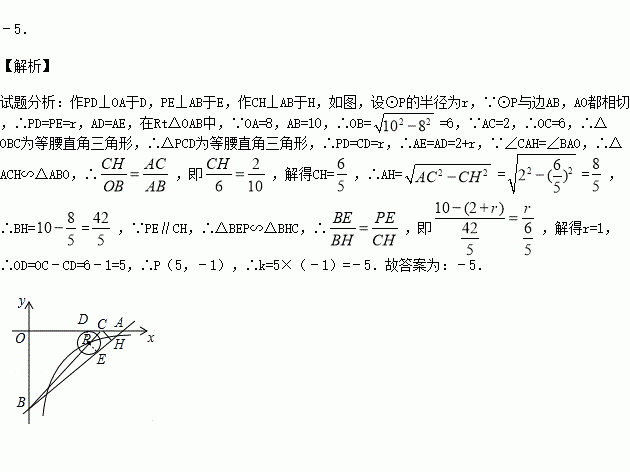 ﹣5.
【解析】
试题分析：作PD⊥OA于D，PE⊥AB于E，作CH⊥AB于H，如图，设⊙P的半径为r，∵⊙P与边AB，AO都相切
，∴PD=PE=r，AD=AE，在Rt△OAB中，∵OA=8，AB=10，∴OB=√(10²－8²) =6，∵AC=2，∴OC=6，∴△
OBC为等腰直角三角形，∴△PCD为等腰直角三角形，∴PD=CD=r，∴AE=AD=2+r，∵∠CAH=∠BAO，∴△
ACH∽△ABO，∴CH/OB=AC/AB，即CH/6=2/10，解得CH=6/5，∴AH=√(AC²－CH²)=√(2²－(6/5)²)=8/5，
∴BH=10－8/5=42/5，∵PE∥CH，∴△BEP∽△BHC，∴BE/BH=PE/CH，即(10－(2+r))/(42/5)=r/(6/5)，解得r=1，
∴OD=OC﹣CD=6﹣1=5，∴P（5，﹣1），∴k=5×（﹣1）=﹣5．故答案为：﹣5．
y
D C A
O P H x
E
B